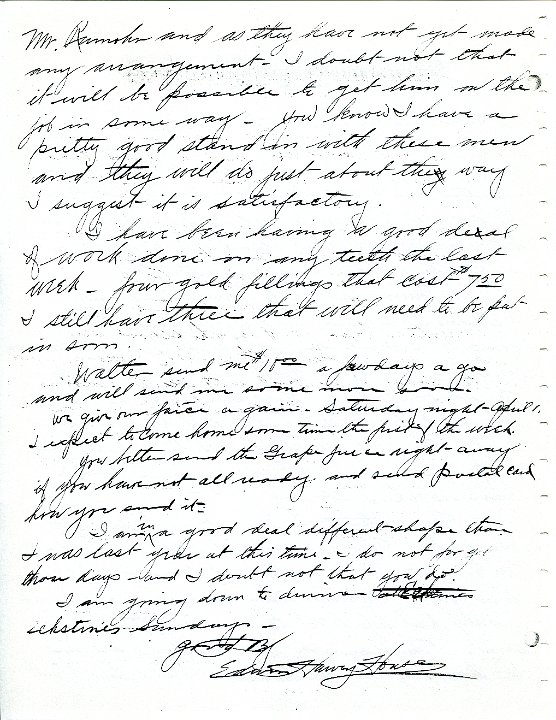 Mr. Ramohr and as they have not yet made
any arrangement - I doubt not that
it will be possible to get him on the
job in some way - you know I have a
pretty good stand in with these men
and they will do just about they way
I suggest it is satisfactory.
I have been having a good deal
of work done on my teeth the last
week - four gold fillings that cost $7.50
I still have three that will need to be put
in soon.
Walter send me $10.00 a few days a go
and will send me some more soon.
We give our farce a gain - Saturday night - April 1.
I expect to come home some time the first of the week.
You better send the Grape juice right-away
if you have not all ready and send postal card
how you send it -
I am in a good deal different shape than
I was last year at this time - I do not forget
those days - and I doubt not that you do.
I am going down to dinner
Sundays -
Good By
Edwin Harvey House